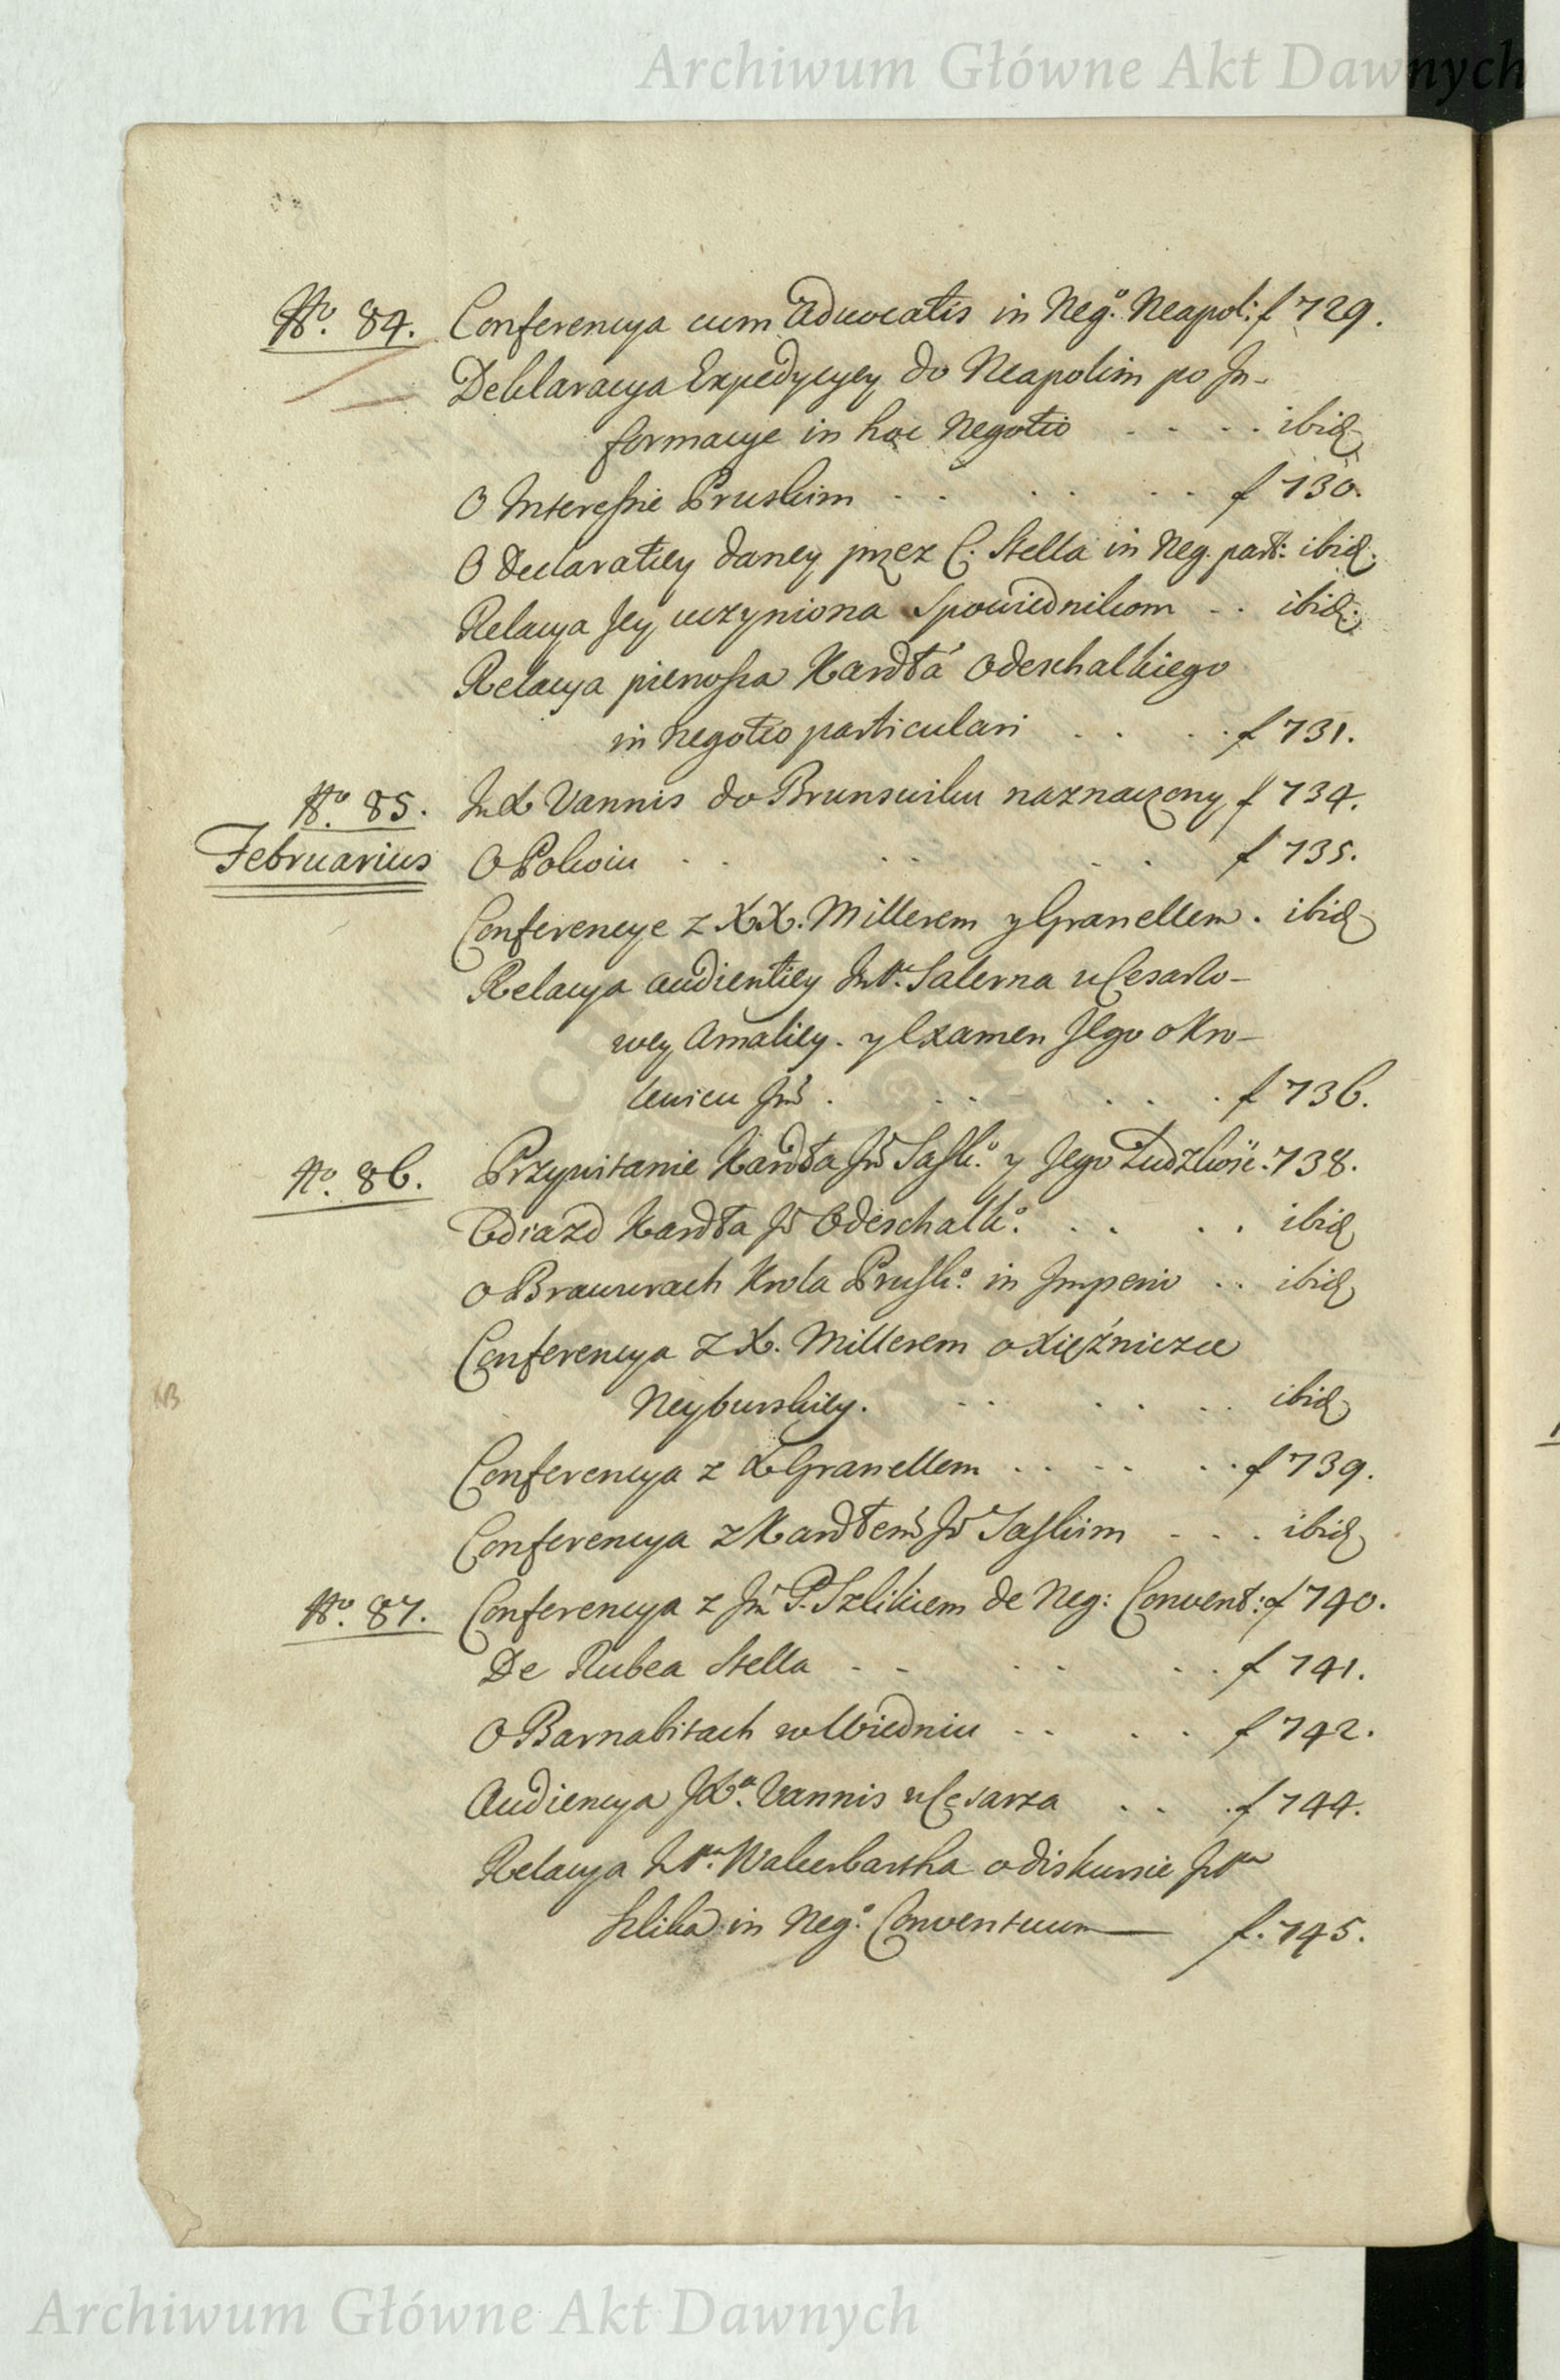 Archiwum Główne Akt Dawnych
No. 84. Conferencya cum Advocatis in Nego. Neapol: f 729.
Deklaracya Expedycyey do Neapolim po In-
formacye in hoc Negotio . . . . ibid
O Interessie Pruskim . . . . . . f 730.
O Declaratiey daney przez C. Stella in Neg. part: ibid.
Relacya Jey uczyniona Spowiednikom . . ibid.
Relacya pierwsza Kardła Odeschalkiego
in Negotio particulari . . . . f 731.
No. 85. JmX Vannis do Brunswiku naznaczony f 734.
Februarius O Pokoiu . . . . . . f 735.
Conferencye z XX. Millerem y Granellem . ibid
Relacya Audientiey Salerna u Cesarzo-
wey Amaliey. y Examen Jego o Kro-
lewicu Jmś . . . . . . f 736.
No. 86. Przywitanie Kardła Jmś Sasko. y Jego Ludzkość. 738.
Odiazd Kardła Jmś Odeschalko. . . . . ibid
O Brawurach Krola Prusko. in Imperio . . ibid
Conferencya z X. Millerem o Xiężniczce
NB
Neyburskiey. . . . . . . ibid
Conferencya z X Granellem . . . . . . f 739.
Conferencya z Kardłem Jmś Saskim . . . ibid
No. 87. Conferencya z Jm P. Szlikiem de Neg: Convent: f 740.
De Rubea Stella . . . . . . f 741.
O Barnabitach w Wiedniu . . . . f 742.
Audiencya JXa. Vannis u Cesarza . . . f 744.
Relacya Wakerbartha o diskursie
Szlika in Nego. Conventuum f. 745.
Archiwum Główne Akt Dawnych